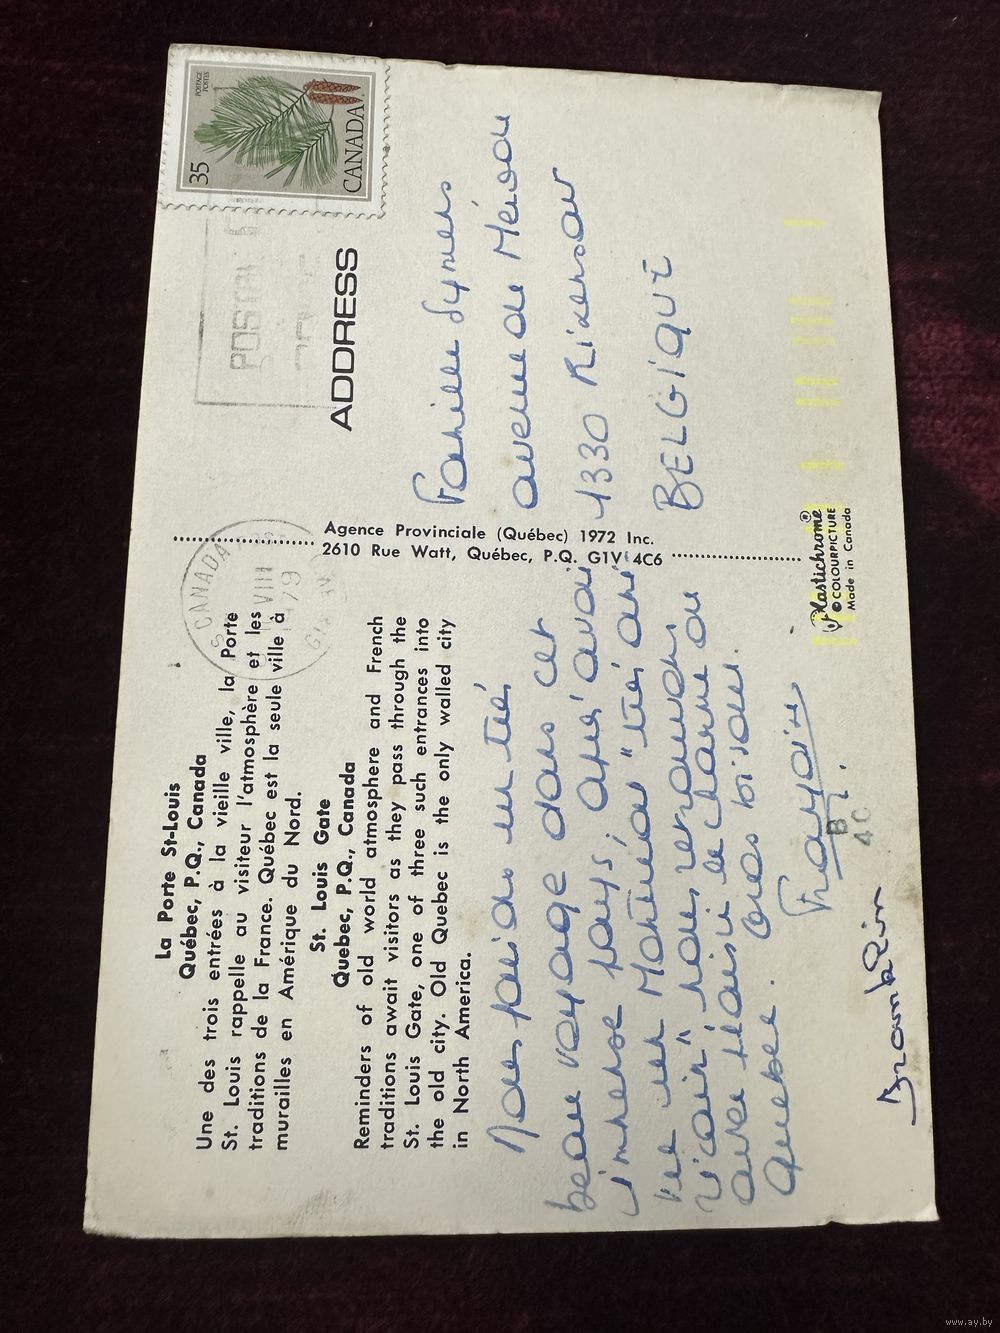 La Porte St-Louis
Québec, P.Q., Canada
Une des trois entrées à la vieille ville, la Porte
St. Louis rappelle au visiteur l'atmosphère et les
traditions de la France. Québec est la seule ville à
murailles en Amérique du Nord.
St. Louis Gate
Quebec, P.Q., Canada
Reminders of old world atmosphere and French
traditions await visitors as they pass through the
St. Louis Gate, one of three such entrances into
the old city. Old Quebec is the only walled city
in North America.
Nous faisons un très
beau voyage dans cet
immense pays, après avoir
vu un Montréal "très amé
ricain" nous retrouvons
avec plaisir le charme de
Québec. Gros bisous.
Françoise
B
40
CANADA
VIII
Agence Provinciale (Québec) 1972 Inc.
2610 Rue Watt, Québec, P.Q. G1V 4C6
Plastichrome®
© COLOURPICTURE
Made in Canada
POSTAGE
POSTES
35
CANADA
POSTAL
ADDRESS
Famille
avenue de
1330 Rixensart
BELGIQUE
www.ay.by